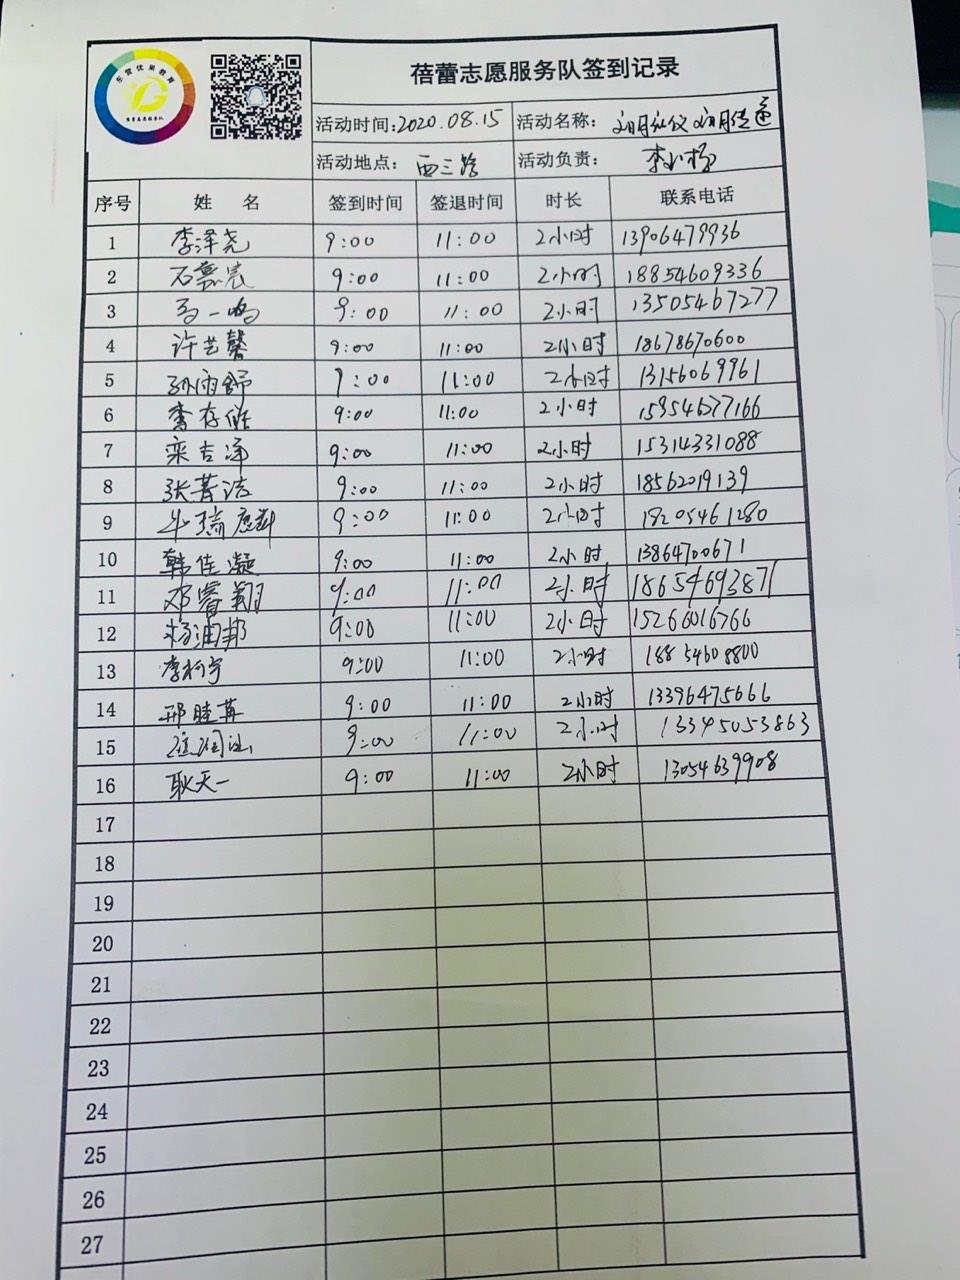 东营优巢教育
蓓蕾志愿服务队签到记录
活动时间:2020.08.15 活动名称: 文明礼仪 文明传递
活动地点: 西三路 活动负责:
序号 姓 名 签到时间 签退时间 时长 联系电话
1 李泽尧 9:00 11:00 2小时 13906479936
2 石慕宸 9:00 11:00 2小时 18854609336
3 马一鸣 9:00 11:00 2小时 13505467277
4 许艺馨 9:00 11:00 2小时 18678670600
5 孙雨舒 9:00 11:00 2小时 13156069961
6 李存 9:00 11:00 2小时 15954677166
7 栾吉泽 9:00 11:00 2小时 15314331088
8 张菁洁 9:00 11:00 2小时 18562019139
9 9:00 11:00 2小时 18205461280
10 韩佳凝 9:00 11:00 2小时 13864700671
11 邓睿翔 9:00 11:00 2小时 18654693871
12 杨润邦 9:00 11:00 2小时 15266016766
13 李柯宇 9:00 11:00 2小时 18854608800
14 邢睦苒 9:00 11:00 2小时 13396475666
15 9:00 11:00 2小时 13345053863
16 耿天一 9:00 11:00 2小时 13054639908
17
18
19
20
21
22
23
24
25
26
27